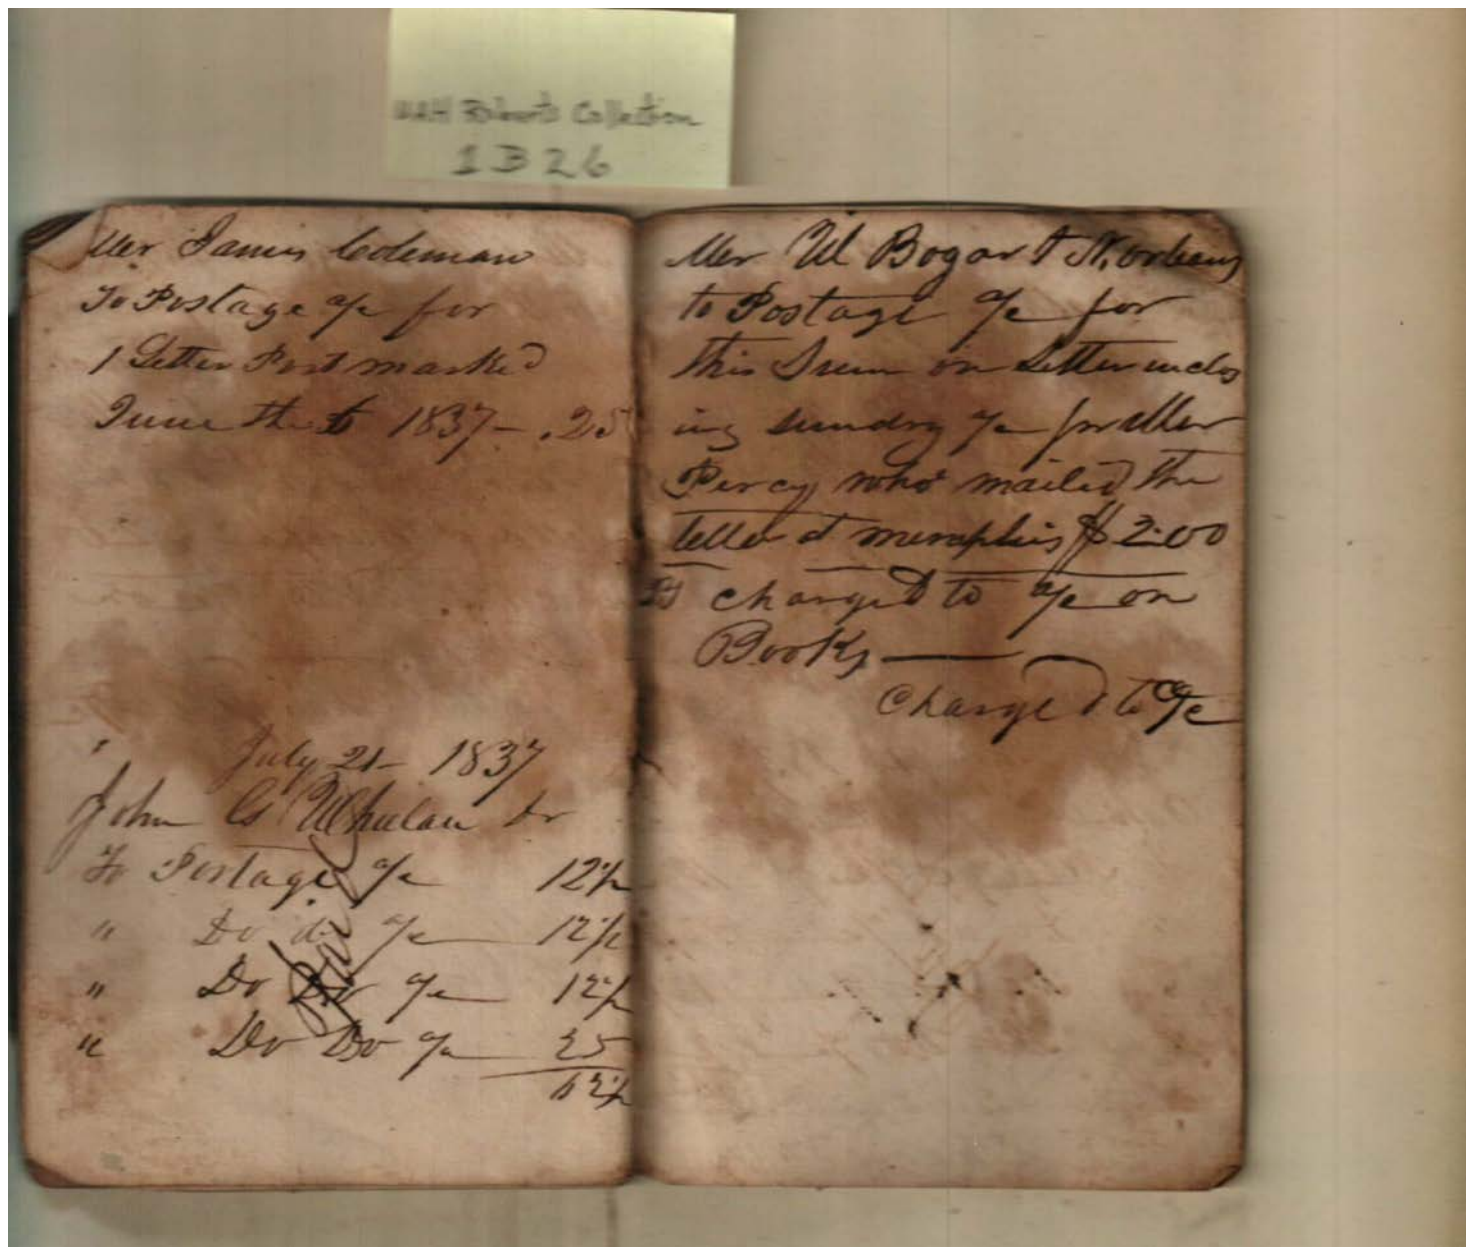 UAH Roberts Collection
1B26
Mr James Coleman
To Postage a/c for
1 Letter Post marked
June the 1837 - .25
July 21 - 1837
John G Whelan Dr
To Postage a/c 12½
" Do do a/c 12½
" Do a/c 12½
" Do Do a/c 25
62½
Mr W Bogart N. orleans
to Postage a/c for
this Sum on Letter inclos
ing sundry a/c for Mr
Percy who mailed the
letter at memphis $2.00
charged to a/c on
Books
Charged to a/c